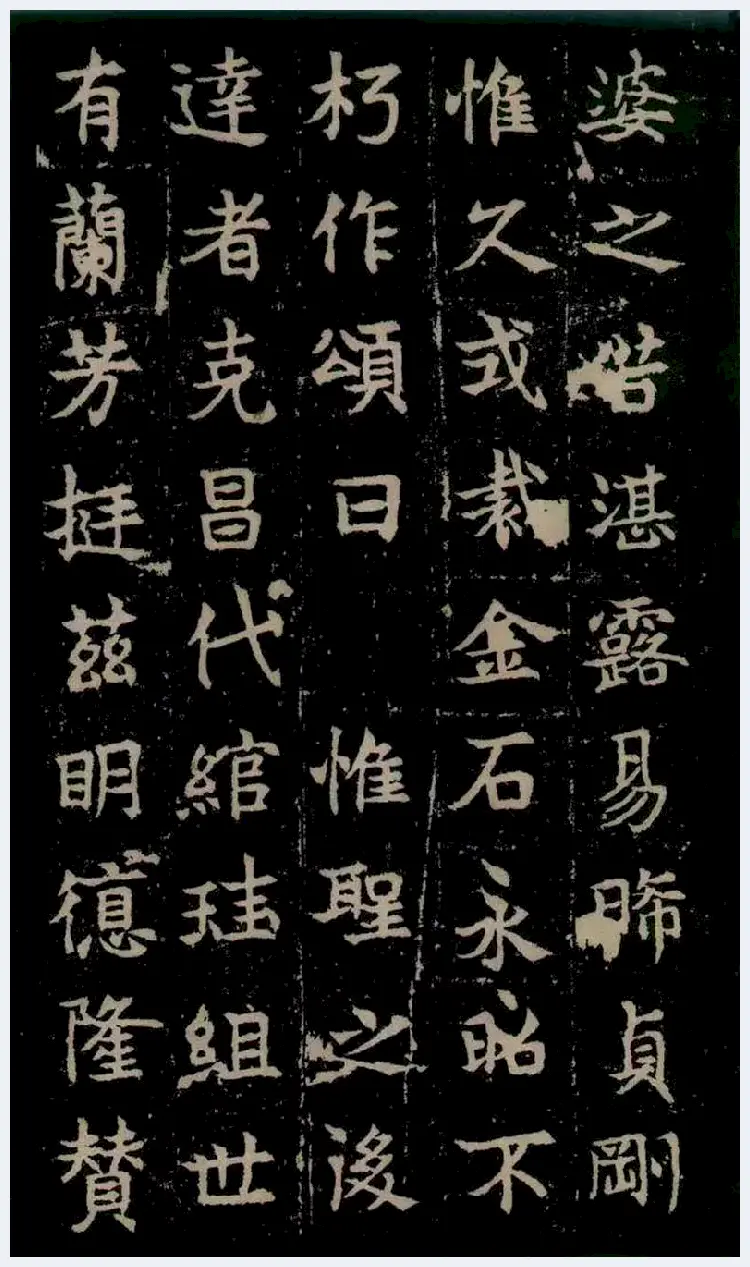 婆之皆湛露易晞貞剛
惟久式裁金石永昭不
朽作頌曰　惟聖之後
達者克昌代綰珪組世
有蘭芳挺茲明德隆贊